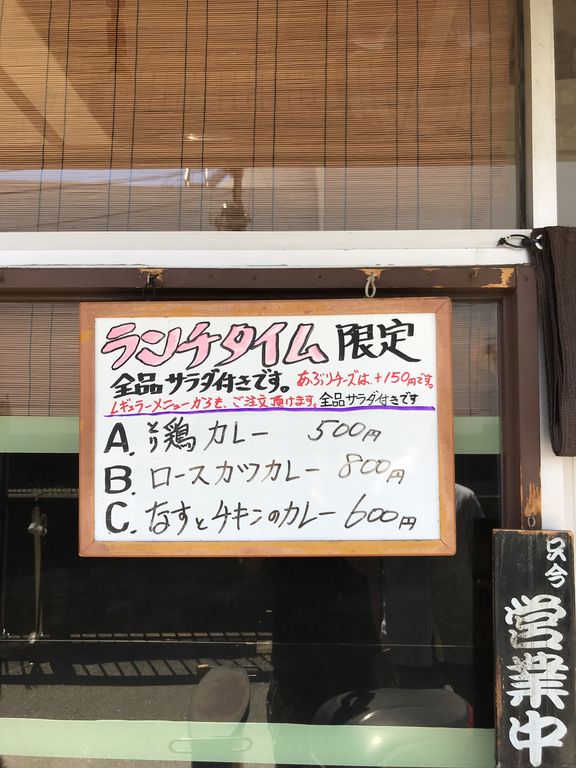 ランチタイム 限定
全品サラダ付きです。 あぶりチーズは、+150円です。
レギュラーメニューからも、ご注文頂けます。全品サラダ付きです
A. とり鶏カレー 500円
B. ロースカツカレー 800円
C. なすとチキンのカレー 600円
只今
営業中